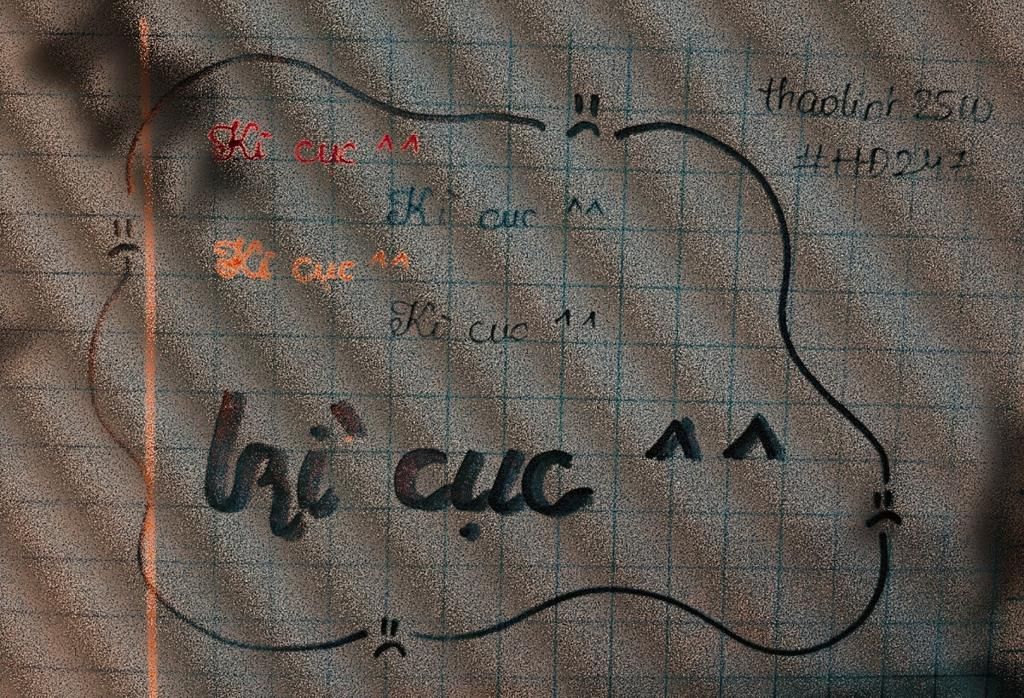 thaolinh 25(11)
#HD247
Kì cục ^^
Kì cục ^^
Kì cục ^^
Kì cục ^^
kì cục ^^